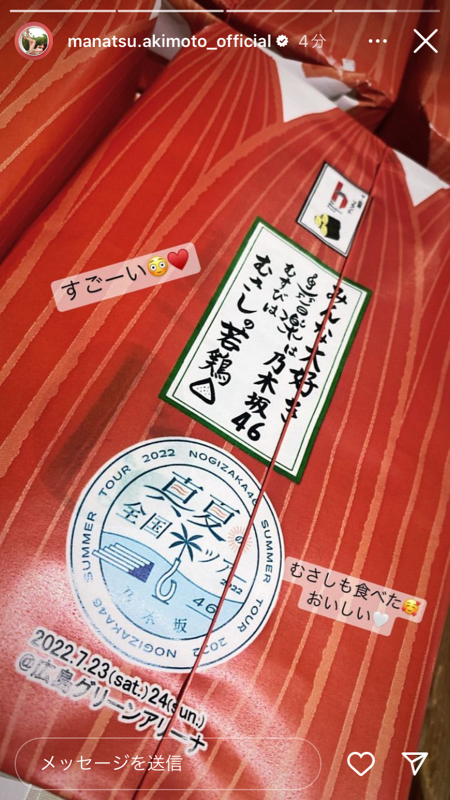 manatsu.akimoto_official 4分
すごーい😳❤️
h
みんな大好き
音楽は乃木坂46
むすびは
むさしの若鶏
NOGIZAKA46 SUMMER TOUR 2022 NOGIZAKA46 SUMMER TOUR 2022
真夏の
全国ツアー
2022
乃木坂46
むさしも食べた🥰
おいしい🤍
2022.7.23(sat.)24(sun.)
@広島グリーンアリーナ
メッセージを送信